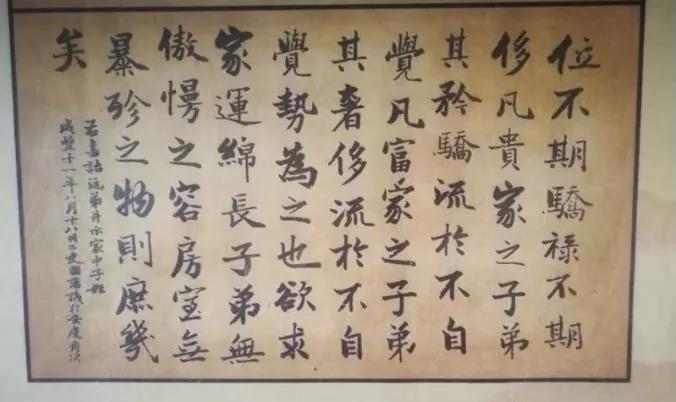 位不期驕禄不期
侈凡貴家之子弟
其矜驕流於不自
覺凡富家之子弟
其奢侈流於不自
覺勢為之也欲求
家運綿長子弟無
傲慢之容房室無
暴殄之物則庶幾
矣
書詒沅弟并示家中子姪
咸豐十一年八月十八日二更國藩識於安慶舟次